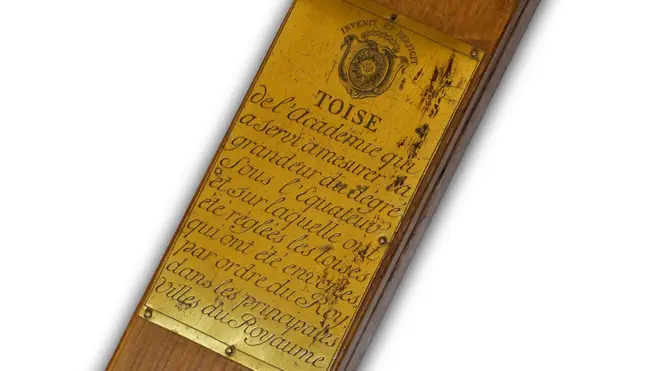 INVENIT ET PERFICIT
TOISE
de l'Académie qui
a servi a mesurer la
grandeur du degré
Sous l'Equateur
et sur laquelle ont
été réglées les toises
qui ont été envoiées
par ordre du Roy,
dans les principales
Villes du Royaume